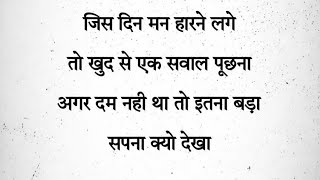 जिस दिन मन हारने लगे
तो खुद से एक सवाल पूछना
अगर दम नही था तो इतना बड़ा
सपना क्यो देखा